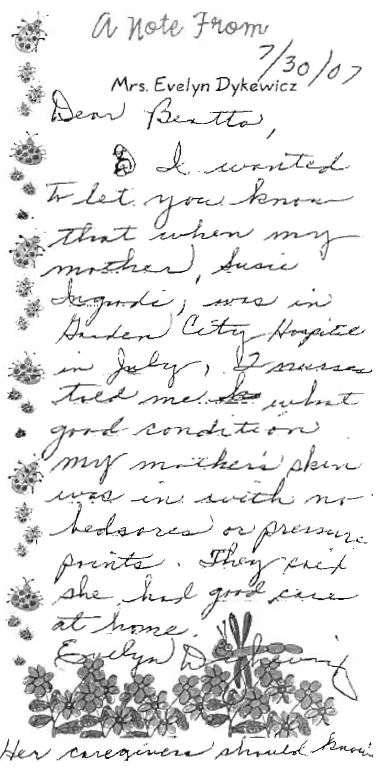 A Note From
7/30/07
Mrs. Evelyn Dykewicz
Dear Beatta,
I wanted
to let you know
that when my
mother, Susie
was in
Garden City Hospital
in July, 2 nurses
told me what
good condition
my mother's skin
was in with no
bedsores or pressure
points. They said
she had good care
at home.
Evelyn Dykewicz
Her caregivers should know